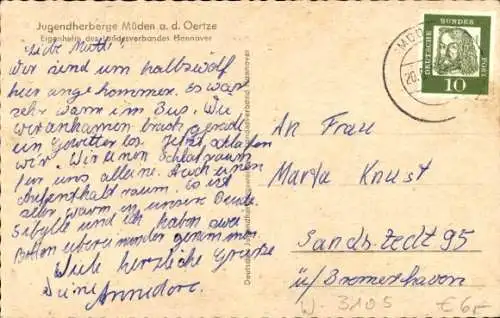 Jugendherberge Müden a. d. Oertze
Eigenheim des Landesverbandes Hannover
Liebe Mutti!
Wir sind um halbzwölf
hier angekommen. Es war
sehr warm im Bus. Wie
wir ankamen brach gerade
ein Gewitter los. Jetzt schlafen
wir. Wir einen Schlafraum
für uns alleine. Auch einen
Aufenthaltraum. Es ist
sehr warm in unsere Bude.
Sibylle und ich haben zwei
Betten übereinander genommen.
Viele herzliche Grüße
Deine Annedore.
DEUTSCHE BUNDES POST
10
An Frau
Marta Knust
Sandstedt 95
ü/Bremerhaven
W-3105 €6,-